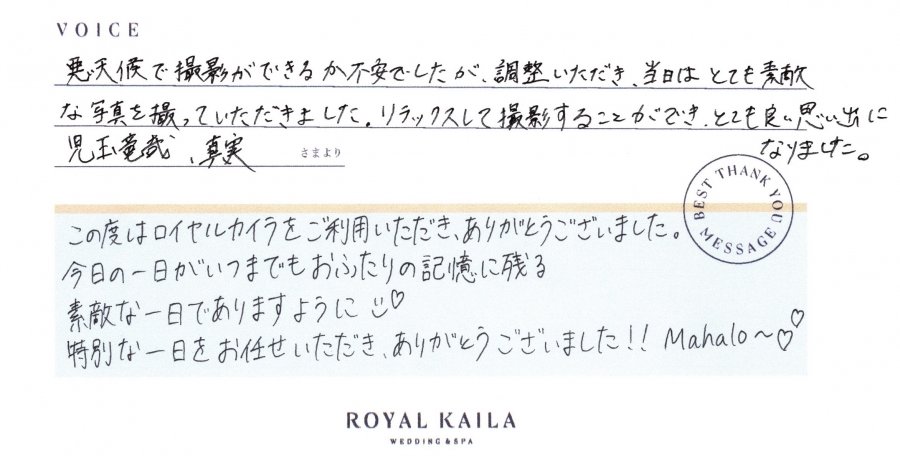 VOICE
悪天候で撮影ができるか不安でしたが、調整いただき、当日はとても素敵
な写真を撮っていただきました。リラックスして撮影することができ、とても良い思い出に
なりました。
児玉竜哉、真実 さまより
BEST THANK YOU MESSAGE
この度はロイヤルカイラをご利用いただき、ありがとうございました。
今日の一日がいつまでもおふたりの記憶に残る
素敵な一日でありますように
特別な一日をお任せいただき、ありがとうございました!! Mahalo~♡♡
ROYAL KAILA
WEDDING & SPA